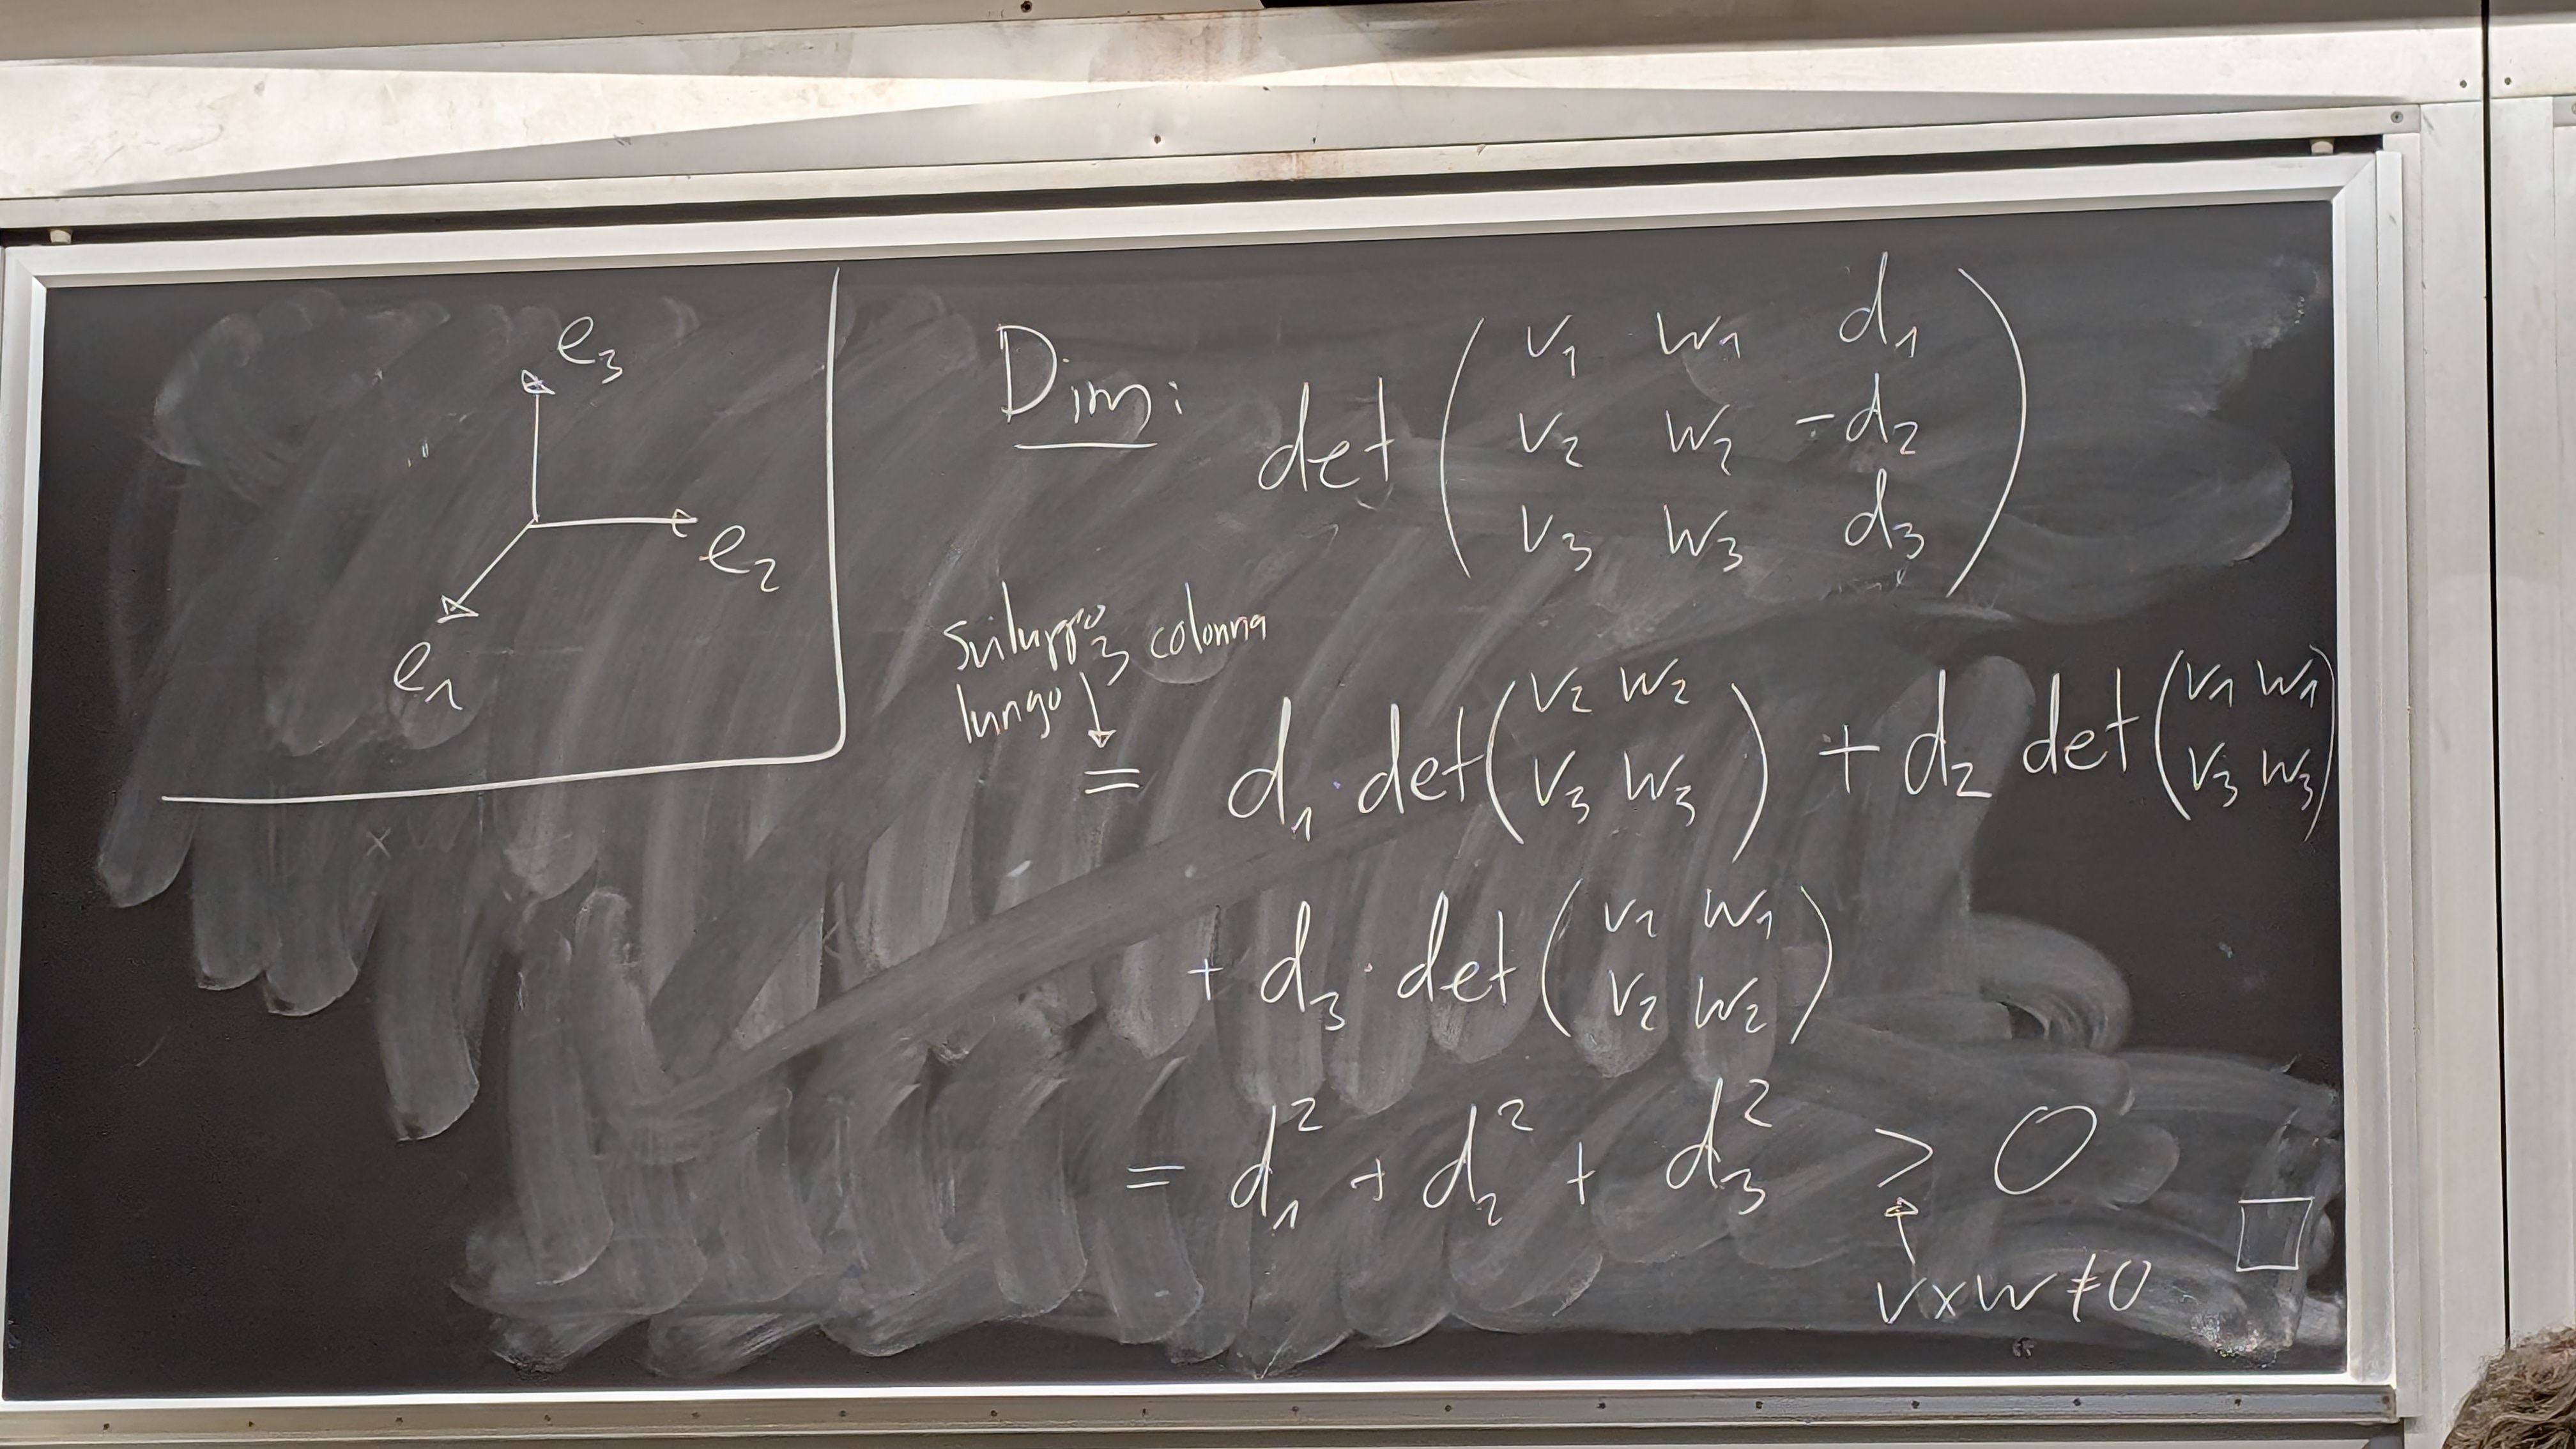 e₃
e₂
e₁
Dim: det ( v₁ w₁ d₁
v₂ w₂ -d₂
v₃ w₃ d₃ )
sviluppo
lungo 3 colonna
= d₁ · det ( v₂ w₂ ; v₃ w₃ ) + d₂ det ( v₁ w₁ ; v₃ w₃ )
+ d₃ · det ( v₁ w₁ ; v₂ w₂ )
= d₁² + d₂² + d₃² > 0
v×w ≠ 0 □